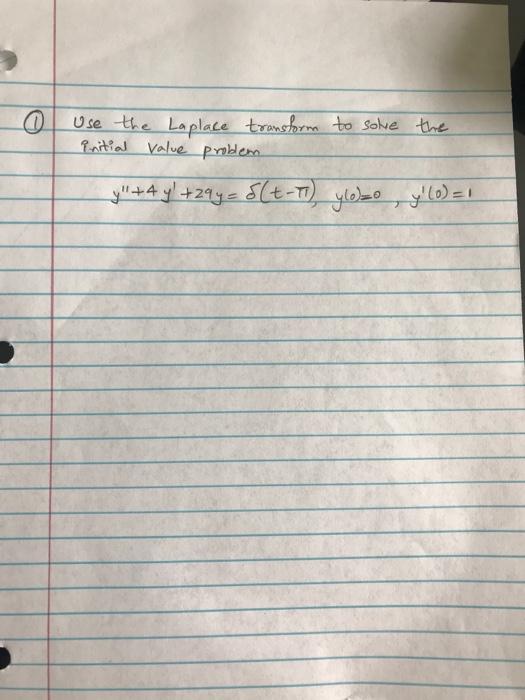 ① Use the Laplace transform to solve the
initial value problem
y''+4y'+29y = δ(t-π), y(0)=0, y'(0)=1